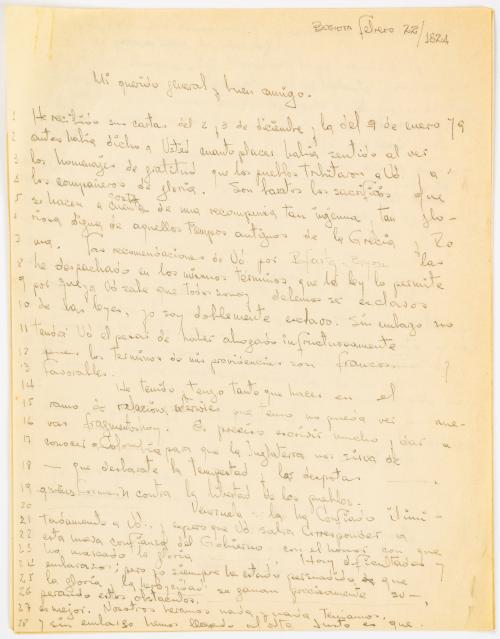 BOGOTA febrero 22/1824
Mi querido general y buen amigo.
1 He recibido sus cartas del 2, 3 de diciembre, y la del 9 de enero Ya
2 antes había dicho a Usted cuanto placer había sentido al ver
3 los homenajes de gratitud que los pueblos tributaron a Ud y a
4 los compañeros de gloria. Son baratos los sacrificios que
5 se hacen a costa de una recompensa tan ingenua tan glo-
6 riosa digna de aquellos tiempos antiguos de la Grecia y Ro
7 ma. Las recomendaciones de Ud por las
8 he despachado en los mismos términos, que la ley lo permite
9 por Ud sabe que todos somos debemos ser esclavos
10 de las leyes, yo soy doblemente esclavo. Sin embargo no
11 tendrá Ud el pesar de haber abogado infructuosamente
12 pues los terminos de mis providencias son francos y
13 favorables.
14 He tenido y tengo tanto que hacer en el
15 ramo de relaciones exteriores que temo no pueda ver nue-
16 vas Es preciso escribir mucho, dar a
17 conocer a Colombia para que la Inglaterra nos sirva de
18 — que desbarate la tempestad y los despotas —
19 quieren formar contra la libertad de los pueblos.
20 Venezuela se la ha confiado ilimi-
21 tadamente a Ud., espero que Ud. sabra corresponder a
22 esta nueva confianza del Gobierno con el honor con que
23 ha marcado la gloria Hay dificultades y
24 embarazos; pero yo siempre he estado persuadido de que
25 la gloria y la se ganan precisamente su-
26 perando estos obstaculos.
27 es mejor. Nosotros heramos nada y nada teniamos,
28 y sin embargo hemos llegado al alto punto en que